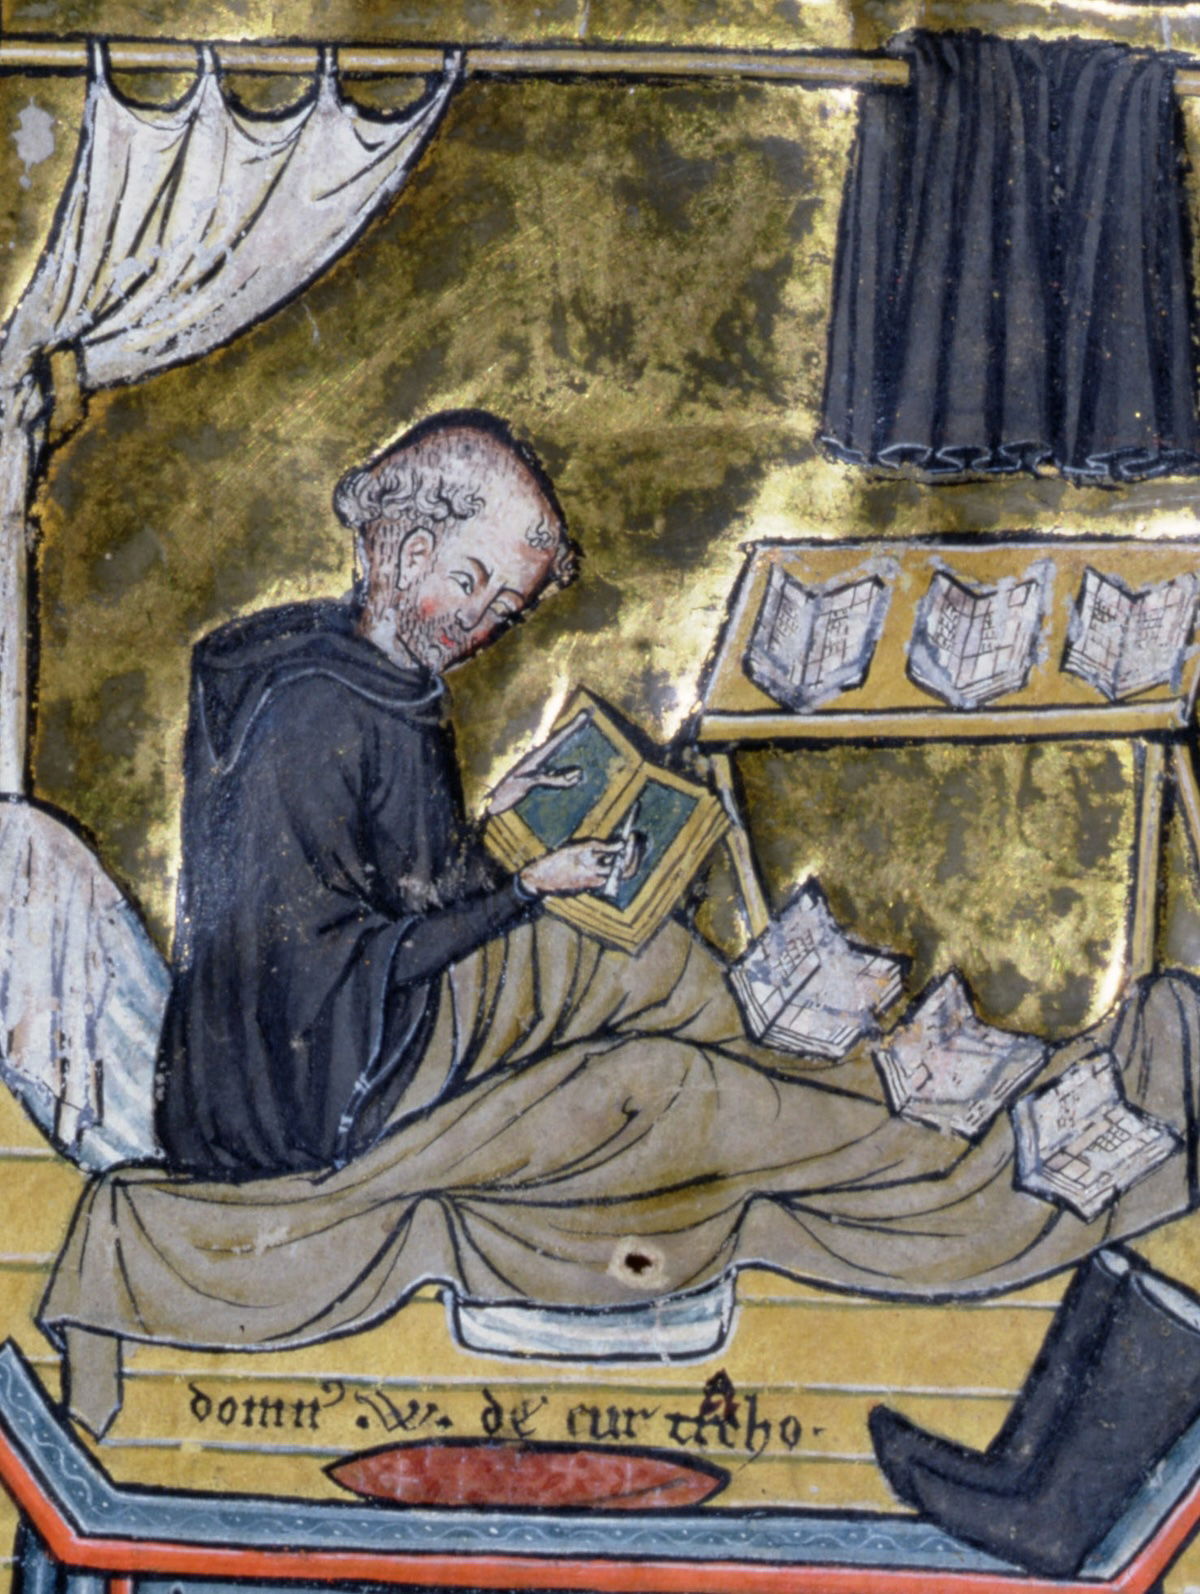 domnꝰ .W. de cur tracho.